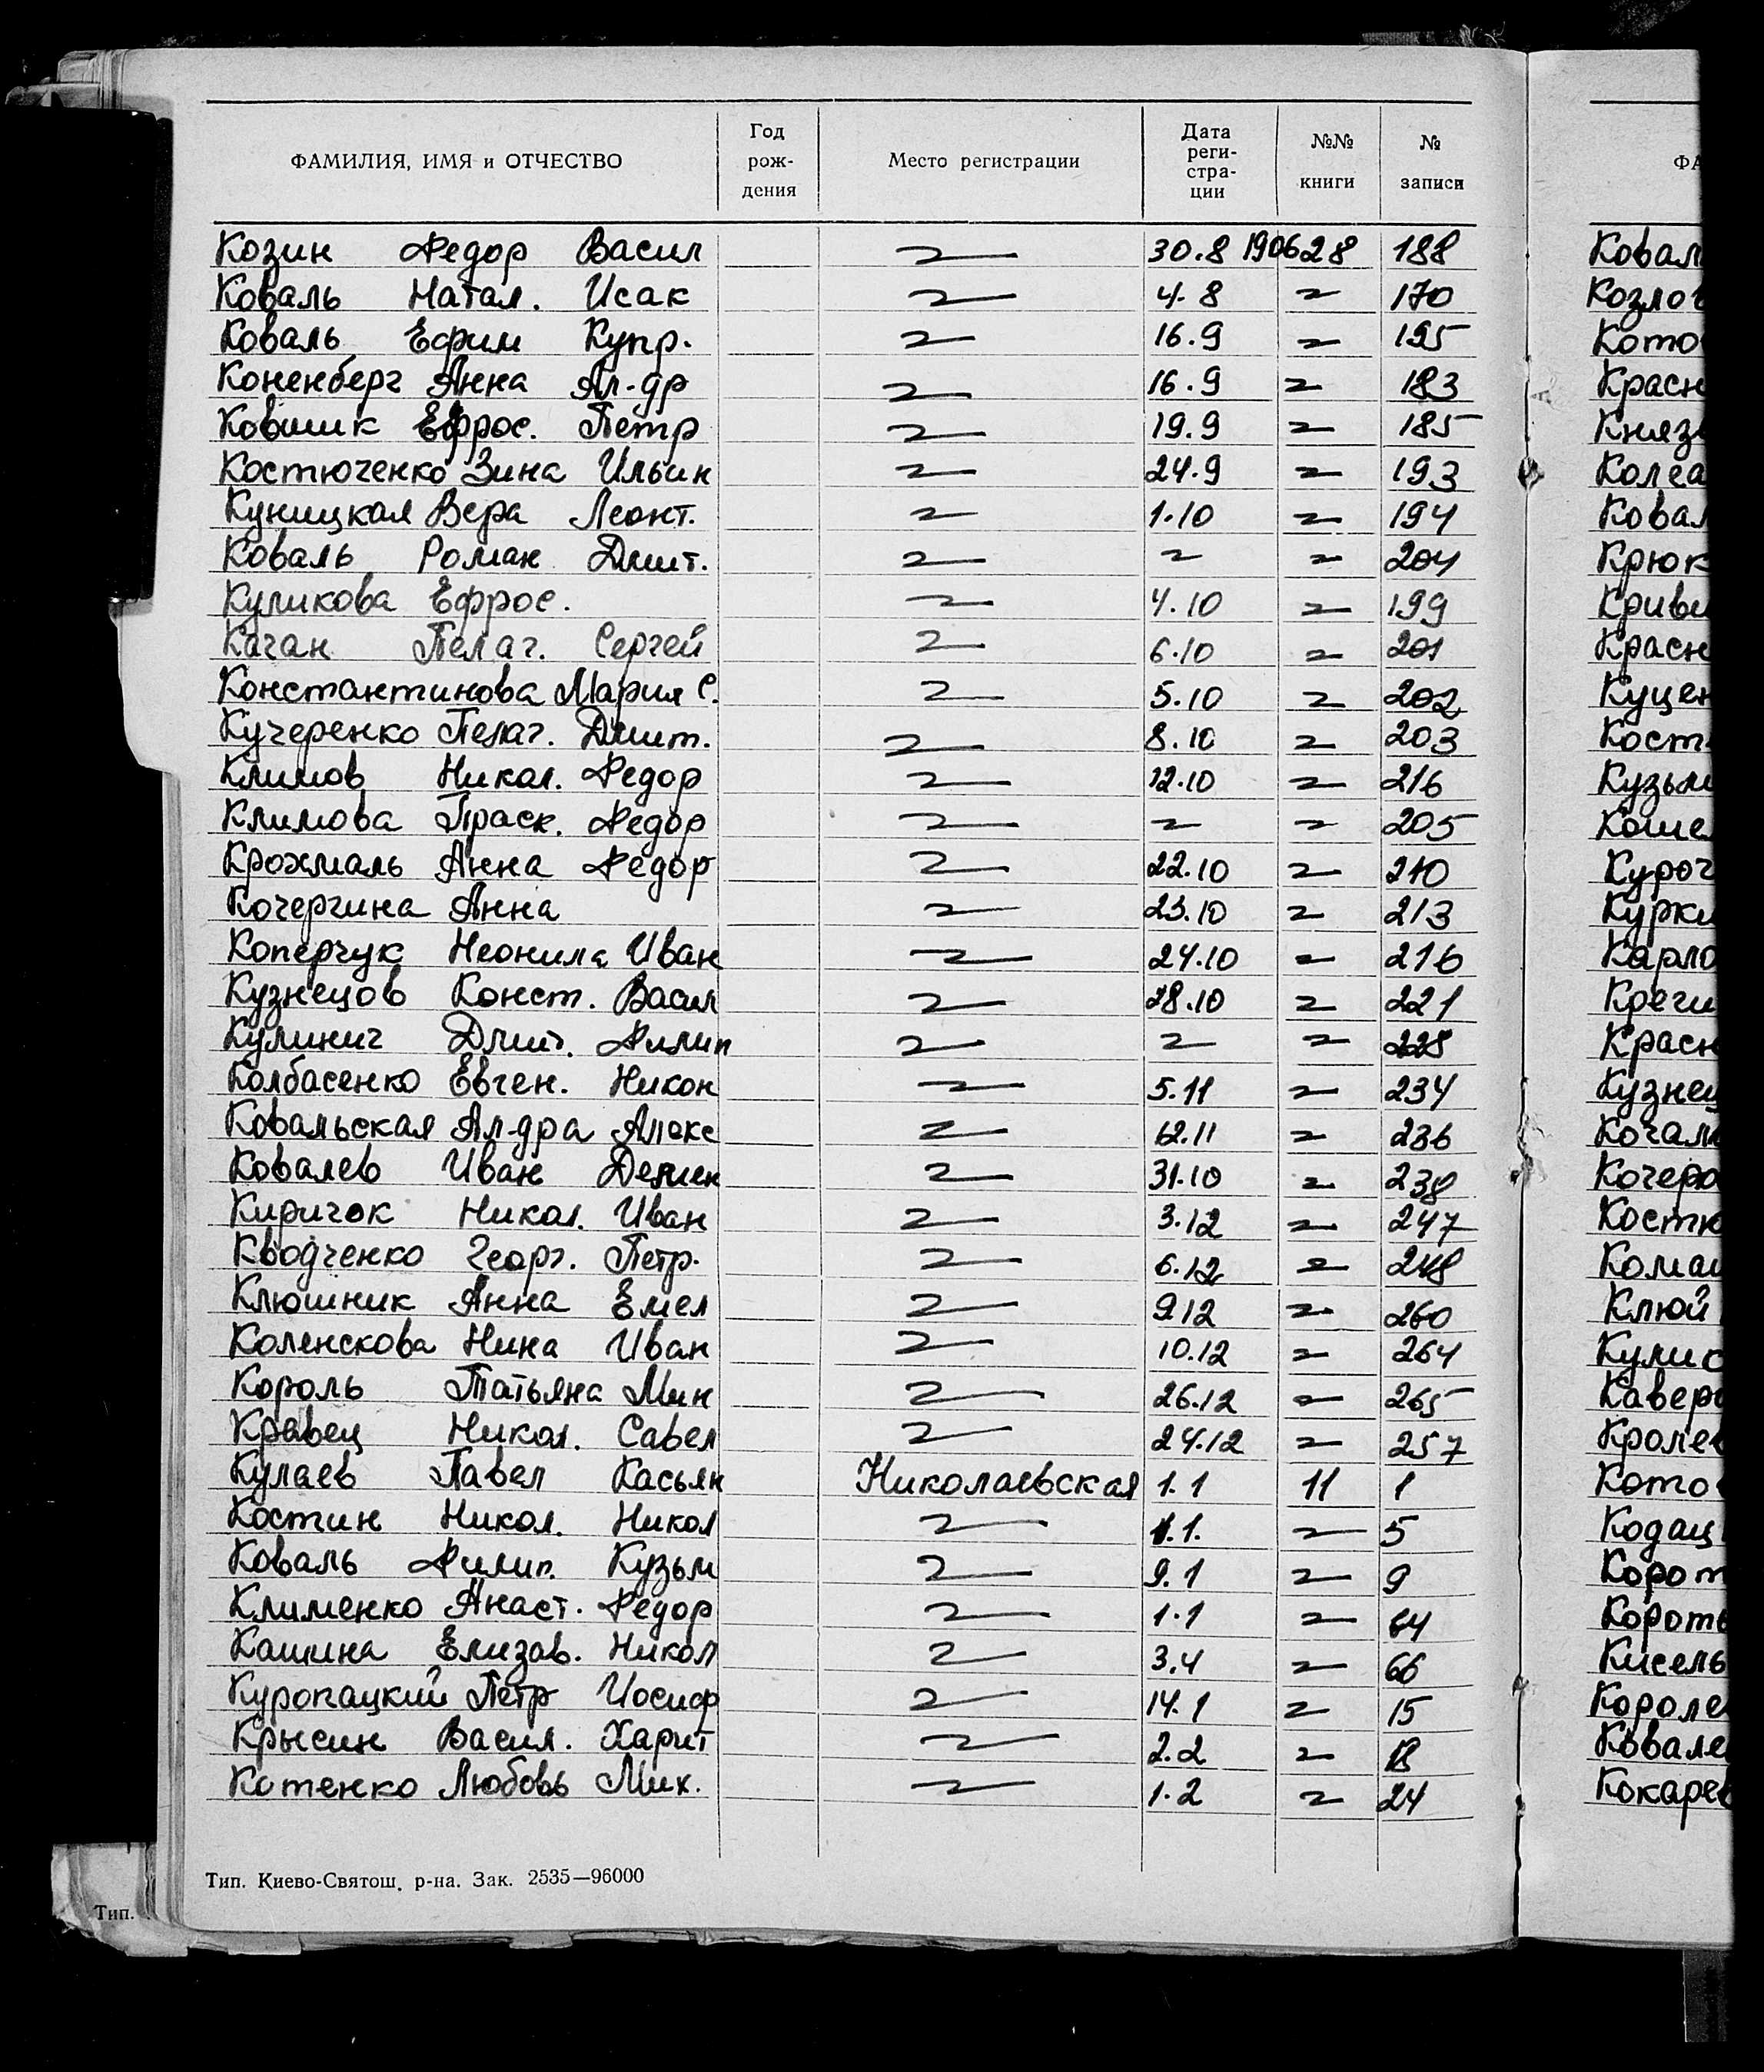 ФАМИЛИЯ, ИМЯ и ОТЧЕСТВО Год рож- дения Место регистрации Дата реги- стра- ции №№ книги № записи
Козин Федор Васил 〃 30.8 1906 28 188
Коваль Натал. Исак 〃 4.8 〃 170
Коваль Ефим Купр. 〃 16.9 〃 195
Коненберг Анна Ал-др 〃 16.9 〃 183
Ковшик Ефрос. Петр 〃 19.9 〃 185
Костюченко Зина Ильин 〃 24.9 〃 193
Куницкая Вера Леонт. 〃 1.10 〃 194
Коваль Роман Дмит. 〃 〃 〃 204
Куликова Ефрос. 〃 4.10 〃 199
Качан Пелаг. Сергей 〃 6.10 〃 201
Константинова Мария С. 〃 5.10 〃 202
Кучеренко Пелаг. Дмит. 〃 8.10 〃 203
Климов Никол. Федор 〃 12.10 〃 216
Климова Праск. Федор 〃 〃 〃 205
Крохмаль Анна Федор 〃 22.10 〃 210
Кочергина Анна 〃 23.10 〃 213
Коперчук Неонила Иван 〃 24.10 〃 216
Кузнецов Конст. Васил 〃 28.10 〃 221
Кулинич Дмит. Филип 〃 〃 〃 228
Колбасенко Евген. Никон 〃 5.11 〃 234
Ковальская Ал-дра Алекс 〃 12.11 〃 236
Ковалев Иван Демен 〃 31.10 〃 238
Киричок Никол. Иван 〃 3.12 〃 247
Кводченко Георг. Петр. 〃 6.12 〃 248
Клюшник Анна Емел 〃 9 12 〃 260
Коленскова Нина Иван 〃 10.12 〃 264
Король Татьяна Мин 〃 26.12 〃 265
Кравец Никол. Савел 〃 24.12 〃 257
Кулаев Павел Касьян Николаевская 1.1 11 1
Костин Никол. Никол 〃 1.1. 〃 5
Коваль Филип. Кузьм 〃 9.1 〃 9
Клименко Анаст. Федор 〃 1.1 〃 64
Кашина Елизав. Никол 〃 3.4 〃 66
Куропацкий Петр Иосиф 〃 14.1 〃 15
Крысин Васил. Харит 〃 2.2 〃 18
Котенко Любовь Мих. 〃 1.2 〃 24
Тип. Киево-Святош. р-на. Зак. 2535—96000
Тип.
ФА
Ковал
Козлов
Кото
Красн
Князе
Колеа
Ковал
Крюк
Криви
Красн
Куцен
Кост
Кузьм
Кошел
Куроч
Курки
Карпо
Кречи
Красн
Кузнец
Кочал
Кочера
Костю
Кома
Клюй
Кулис
Кавер
Кролев
Кото
Кодац
Корот
Корот
Кисель
Короле
Ковале
Кокарев